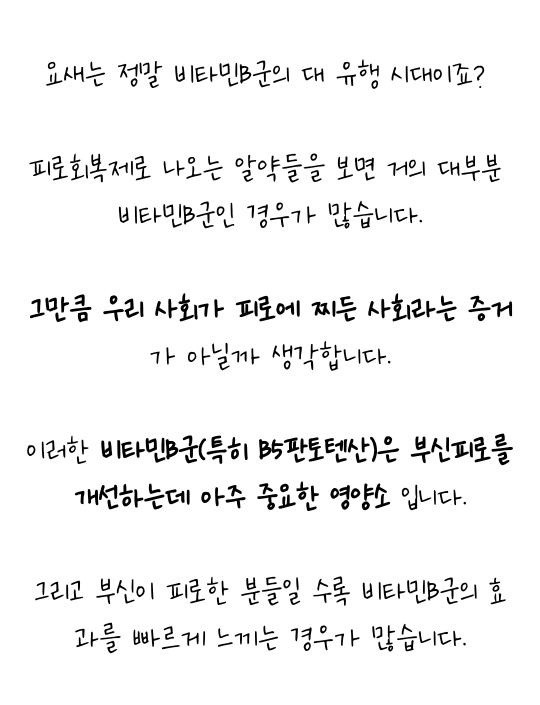 요새는 정말 비타민B군의 대 유행 시대이죠?
피로회복제로 나오는 알약들을 보면 거의 대부분
비타민B군인 경우가 많습니다.
그만큼 우리 사회가 피로에 찌든 사회라는 증거
가 아닐까 생각합니다.
이러한 비타민B군(특히 B5판토텐산)은 부신피로를
개선하는데 아주 중요한 영양소 입니다.
그리고 부신이 피로한 분들일 수록 비타민B군의 효
과를 빠르게 느끼는 경우가 많습니다.